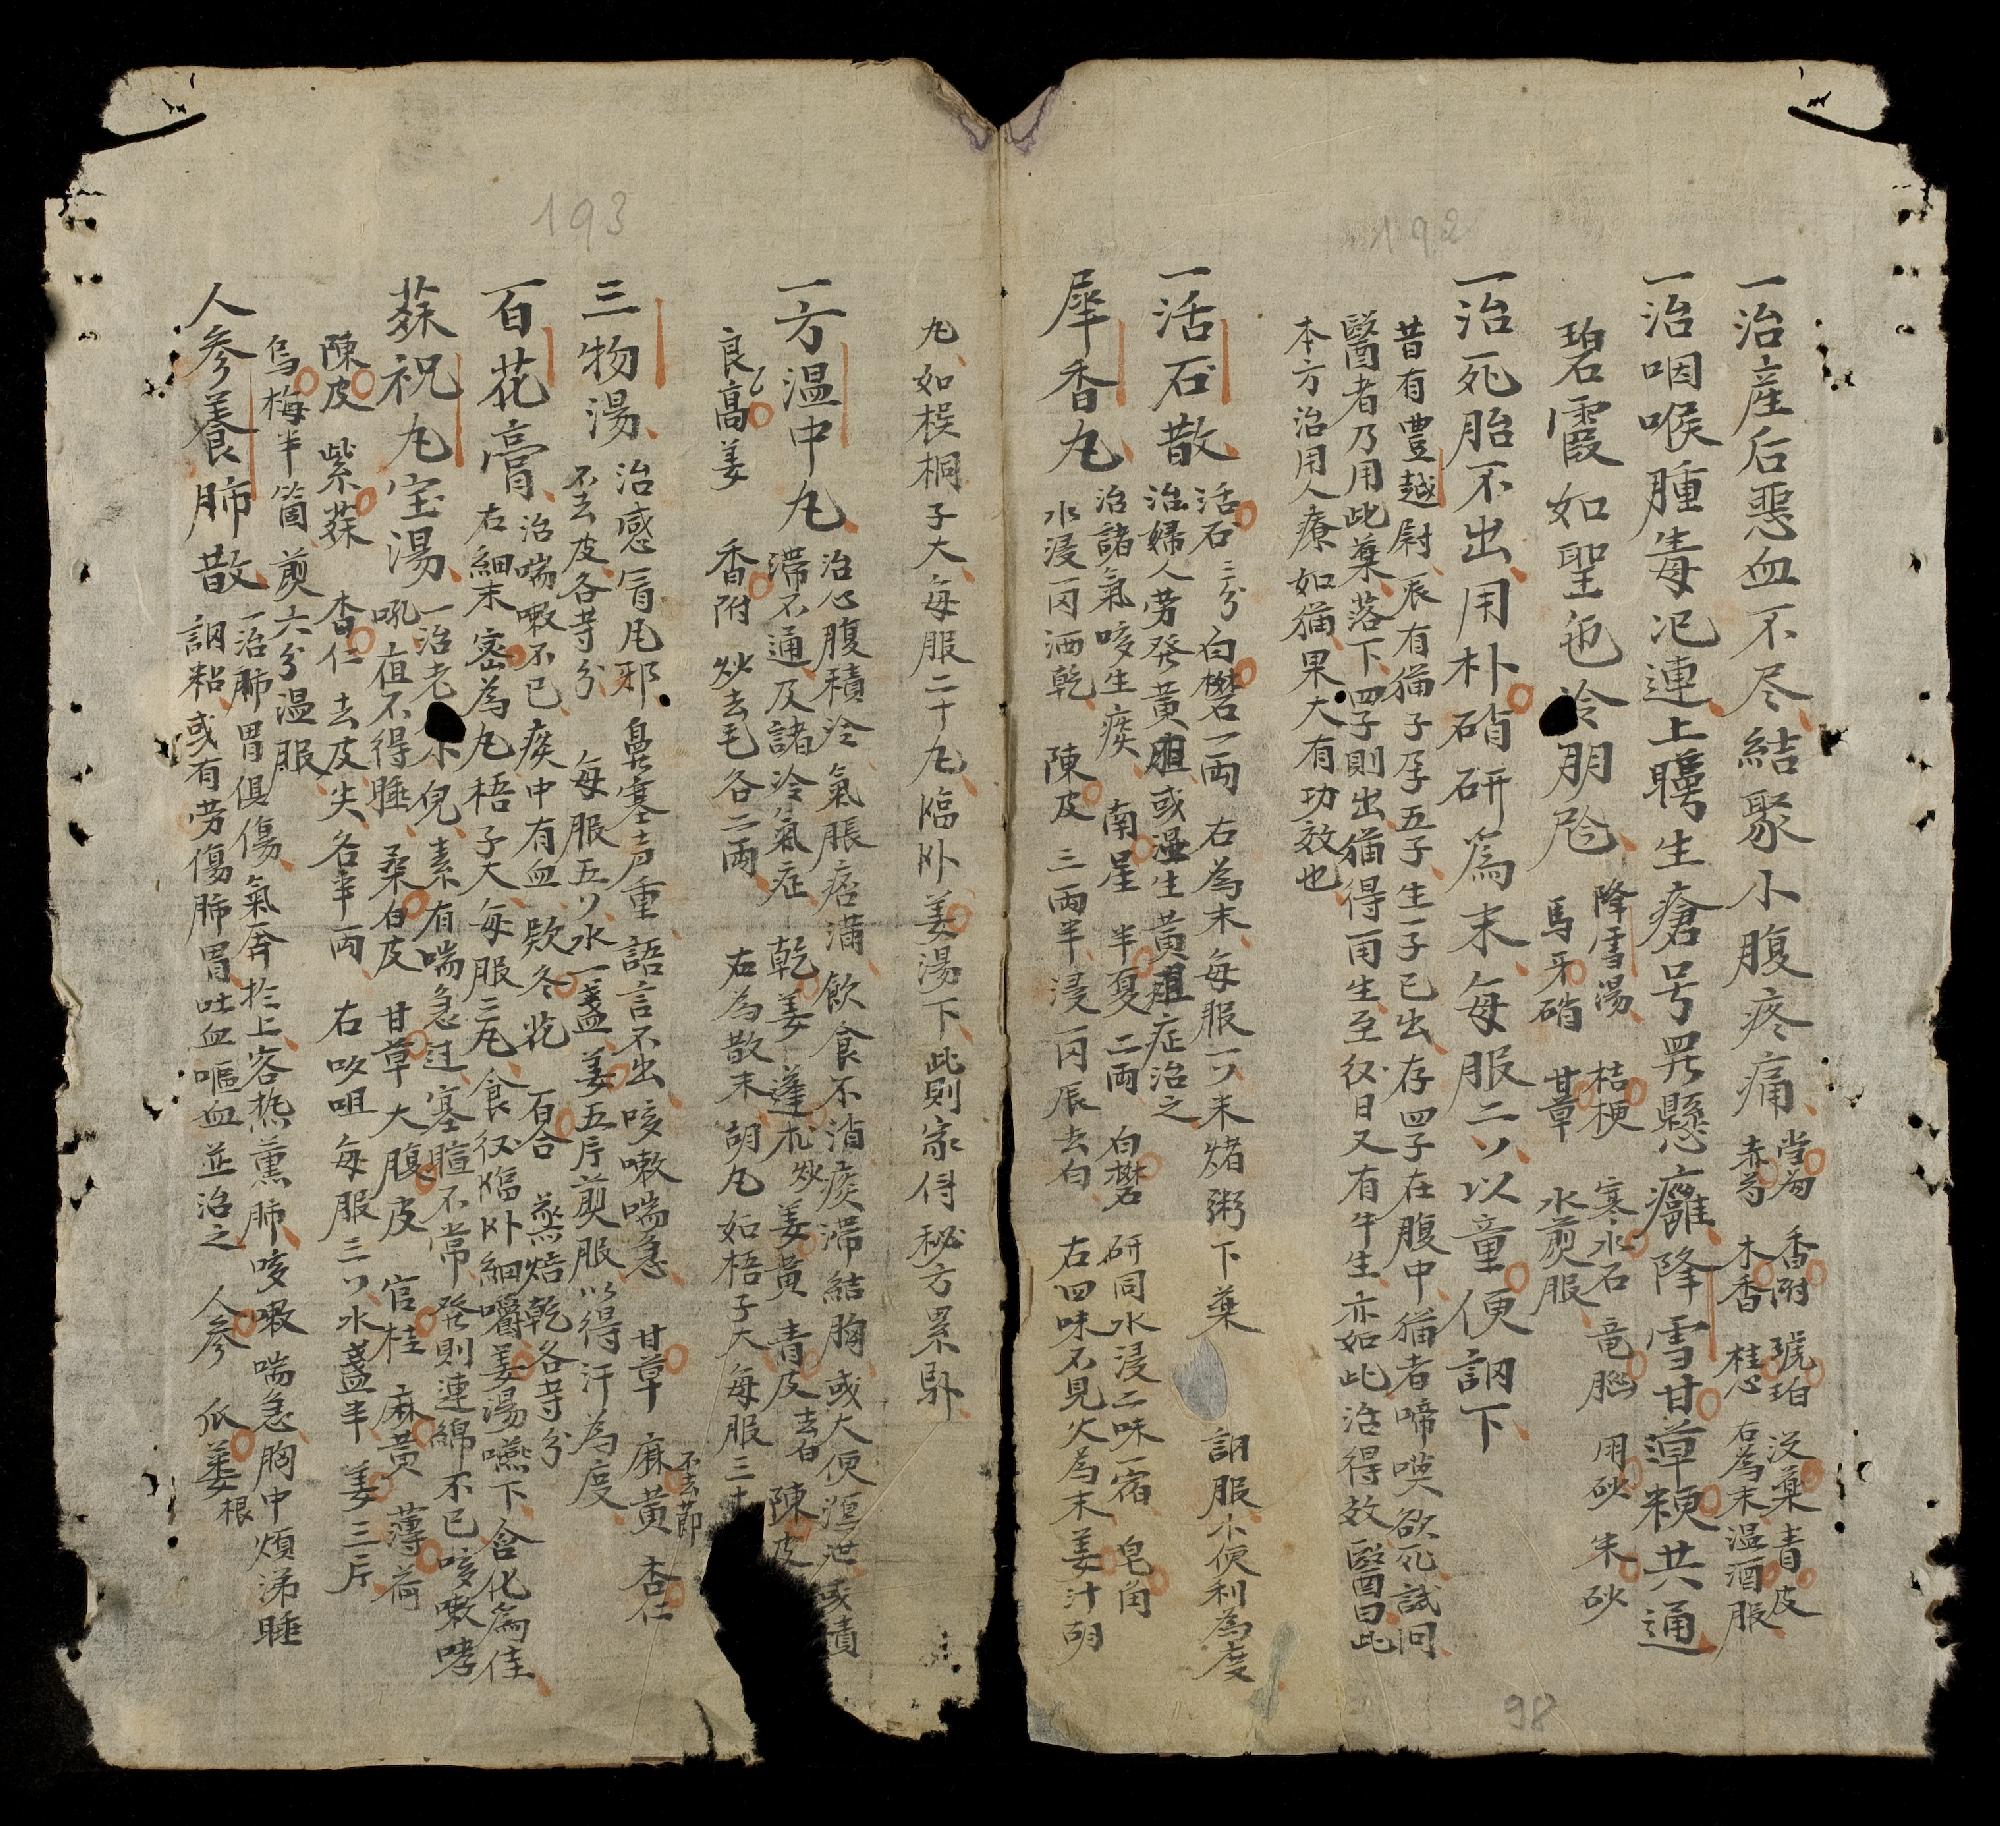 192
一治産后惡血不尽結聚小腹疼痛
當歸 香附 琥珀 没藥 青皮
赤芍 木香 桂心 右為末温酒服
一治咽喉腫毒 連上 生瘡号 懸癰降雪甘草粳共通
碧霞如聖 冷朋
降雪湯 桔梗 寒水石 竜腦 用砂 朱砂
馬牙硝 甘草 水煎服
一治死胎不出用朴硝研為末每服二〻以童便調下
昔有豊越尉辰有猫子孕五子生一子已出存四子在腹中猫者啼哭欲死試问
醫者乃用此藥落下四子則出猫得再生至後日又有牛生亦如此治得效醫曰此
本方治用人療如猫果大有功效也
一活石散 活石二分 白礬一兩 右為末每服一〻末煮粥下藥 調服小便利為度
治婦人劳發黄疸或湿生黄疸症治之
犀香丸 治諸氣咳生痰 南星 半夏二兩 白礬 研同水浸二味一宿 皂角
水浸一閃洒乾 陳皮三兩半浸一閃辰去白 右四味不見火為末姜汁胡
98
193
丸如梧桐子大每服二十丸臨卧姜湯下此則家傳秘方累験
一方温中丸 治心腹積冷氣脹痞滿飲食不消痰滞結胸或大便溏泄或積
滞不通及諸冷氣症 乾姜 蓬朮炒 姜黄 青皮去白 陳皮
良高姜 香附炒去毛各二兩 右為散末胡丸如梧子大每服三十
三物湯 治感冒凡邪鼻塞声重語言不出咳嗽喘急 甘草 麻黄不去節 杏仁
不去皮各等分 每服五〻水一盞姜五片煎服以得汗為度
百花膏 治喘嗽不已痰中有血 款冬花 百合 蒸焙乾各等分
右細末密為丸梧子大每服三丸食後臨卧細嚼姜湯嚥下含化為佳
蘇祝九宝湯 一治老小兒素有喘急 寒暄不常發則連綿不已咳嗽哮
吼夜不得睡 桑白皮 甘草 大腹皮 官桂 麻黄 薄荷
陳皮 紫蘇 杏仁去皮尖各半兩 右㕮咀每服三〻水盞半姜三片
烏梅半箇煎六分温服
人参養肺散 一治肺胃俱傷氣奔於上客热薰肺咳嗽喘急胸中煩涕唾
調粘或有劳傷肺胃吐血嘔血並治之 人参 瓜蔞根